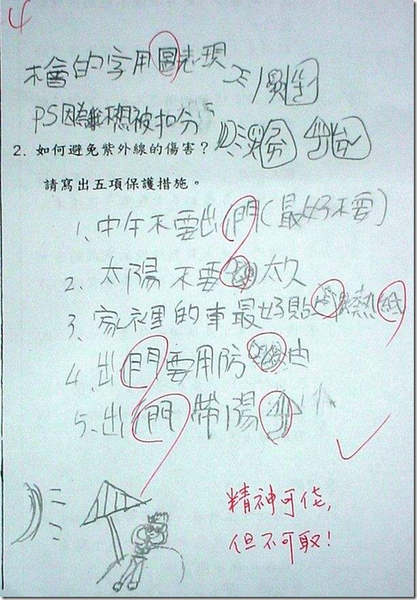 4
不會的字用圖表現
PS因為誰不想被扣分
2. 如何避免紫外線的傷害？
請寫出五項保護措施。
1、中午不要出門(最好不要)
2、太陽不要 太久
3、家裡的車最好貼 熱紙
4、出門要用防 油
5、出門帶陽
精神可佳，
但不可取！